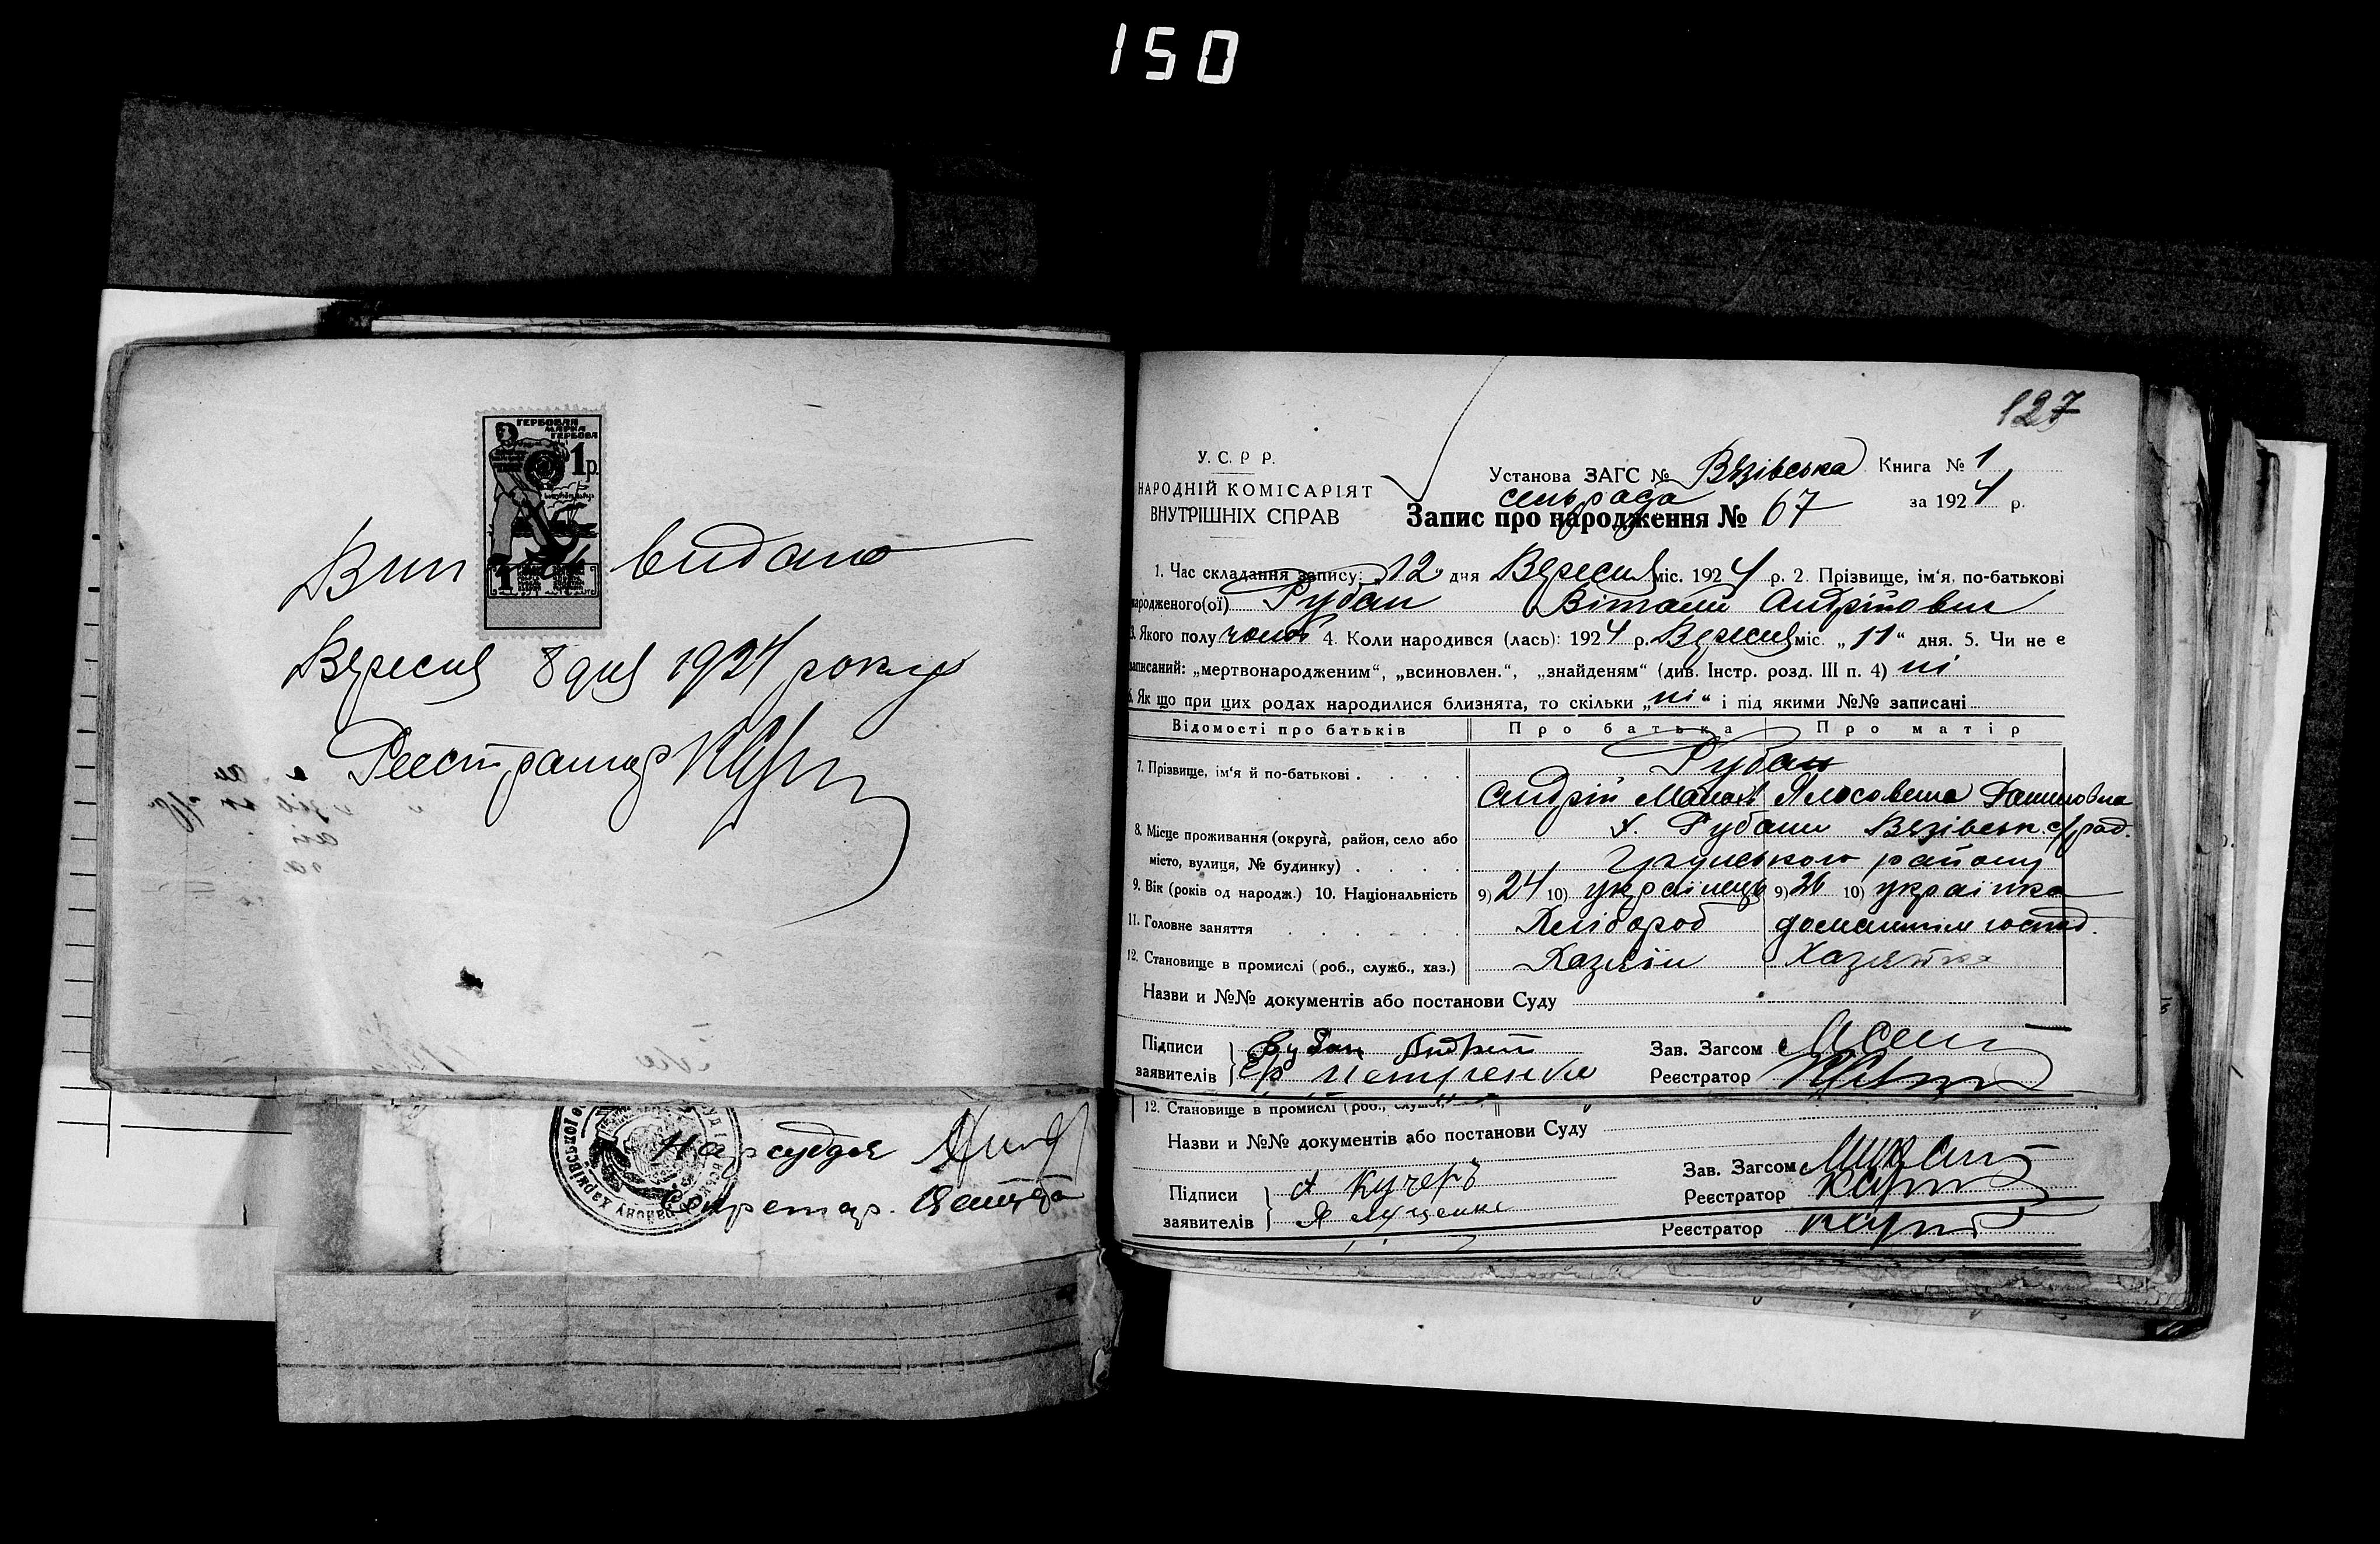 150
ГЕРБОВАЯ
МАРКА
ГЕРБОВА
1 р.
видано
Вересня 8 дня 1924 року
Реєстратор
Нарсуддя
Секретар.
127
У. С. Р Р.
НАРОДНІЙ КОМІСАРІЯТ
ВНУТРІШНІХ СПРАВ
Установа ЗАГС № Вязівська Книга № 1
сельрада за 1924 р.
Запис про народження № 67
1. Час складання запису: „12„ дня Вересня міс. 1924 р. 2. Прізвище, ім‘я, по-батькові
народженого(ої) Рубан Віталій Андрійович
3. Якого полу чолов 4. Коли народився (лась): 1924 р. Вересня міс. „11“ дня. 5. Чи не є
записаний: „мертвонародженим“, „всиновлен.“, „знайденям“ (див. Інстр. розд. III п. 4) ні
6. Як що при цих родах народилися близнята, то скільки „ні“ і під якими №№ записані
Відомості про батьків Про батька Про матір
7. Прізвище, ім‘я й по-батькові Рубан
Андрій
8. Місце проживання (округа, район, село або х. Рубани Вязівськ с/рад.
місто, вулиця, № будинку) району
9. Вік (років од народж.) 10. Національність 9) 24 10) українець 9) 26 10) українка
11. Головне заняття Хлібороб
12. Становище в промислі (роб., служб., хаз.) Хазяїн Хазяйка
Назви и №№ документів або постанови Суду
Підписи Рубан Андрей Зав. Загсом
заявителів Реєстратор
12. Становище в промислі (роб., служб.,
Назви и №№ документів або постанови Суду
Підписи А Кучеръ Зав. Загсом
заявителів Я Луценко Реєстратор
Реєстратор